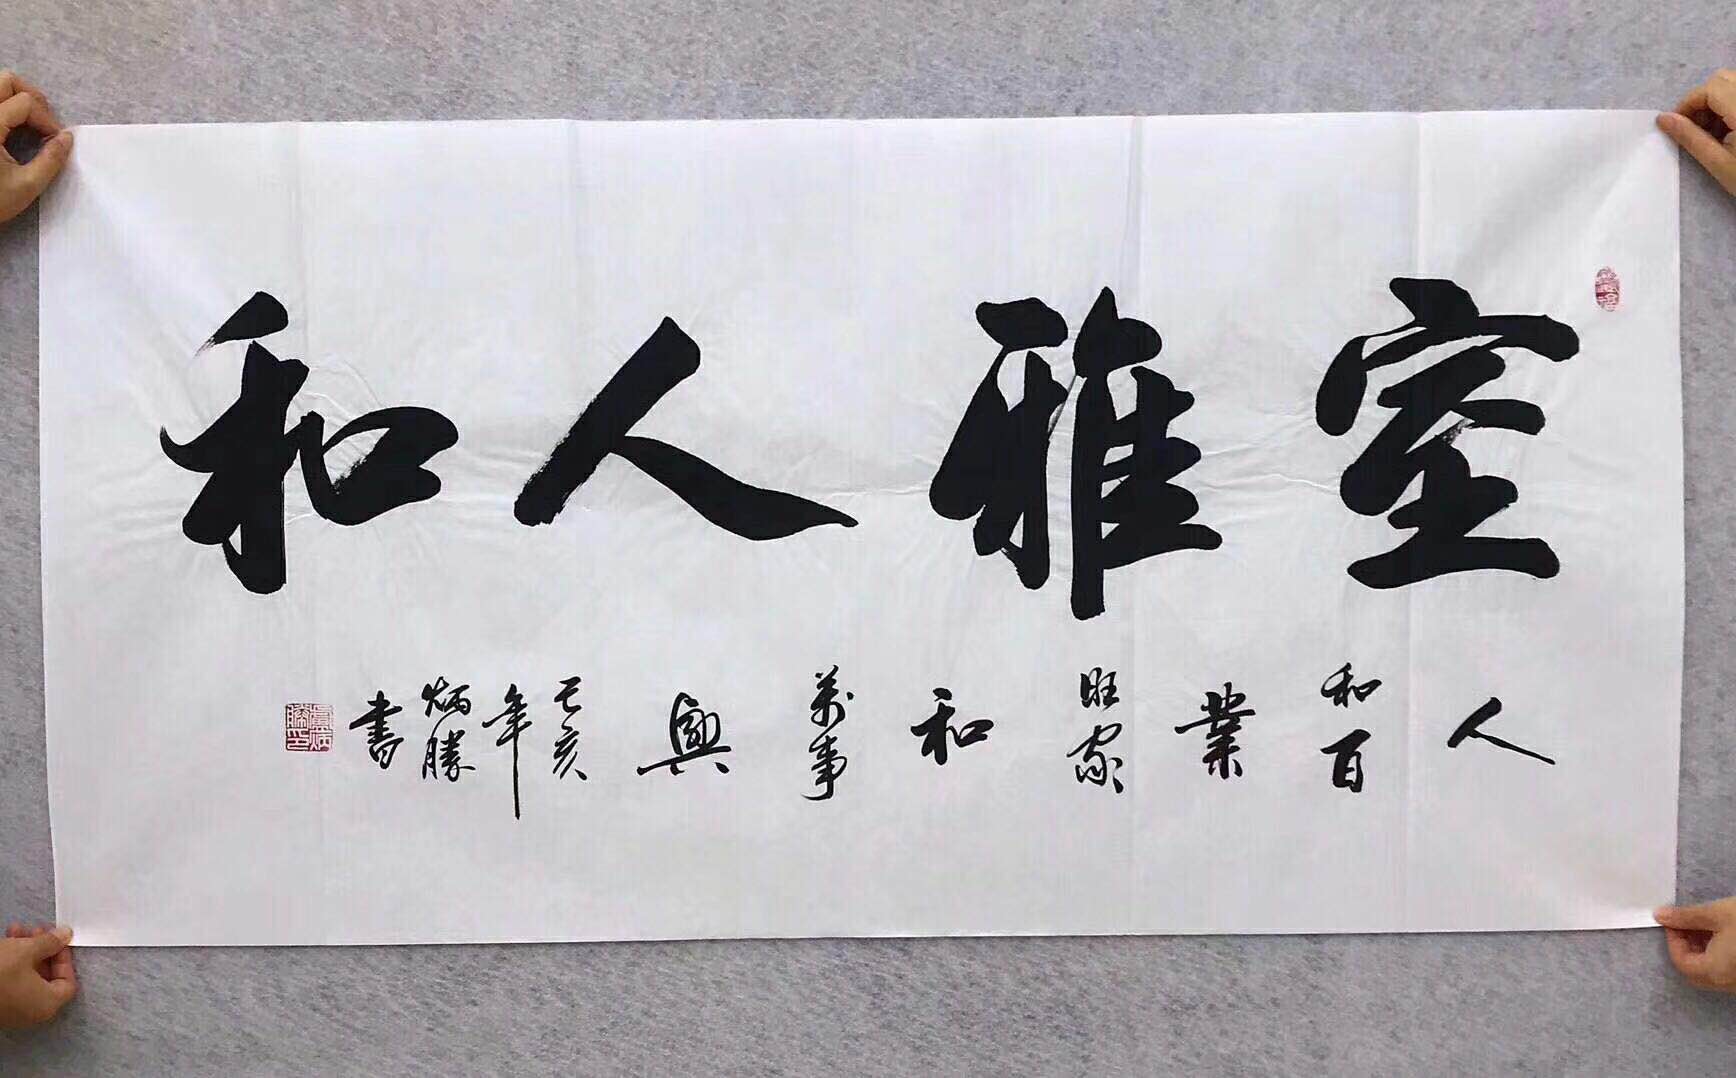 室雅人和
人和百業旺家和萬事興
己亥年炳勝書